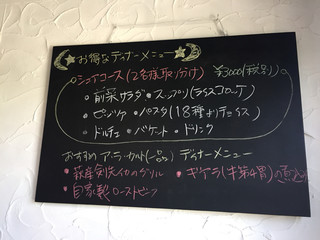 お得なディナーメニュー
シェアコース(2名様取り分け) ¥3000(税別)
・前菜サラダ ・スップリ(ライスコロッケ)
・ピッツァ ・パスタ(18種よりチョイス)
・ドルチェ ・バケット ・ドリンク
おすすめ アラカルト(一品) ディナーメニュー
・萩産剣先イカのグリル ・ギアラ(牛第4胃)の煮込
・自家製ローストビーフ